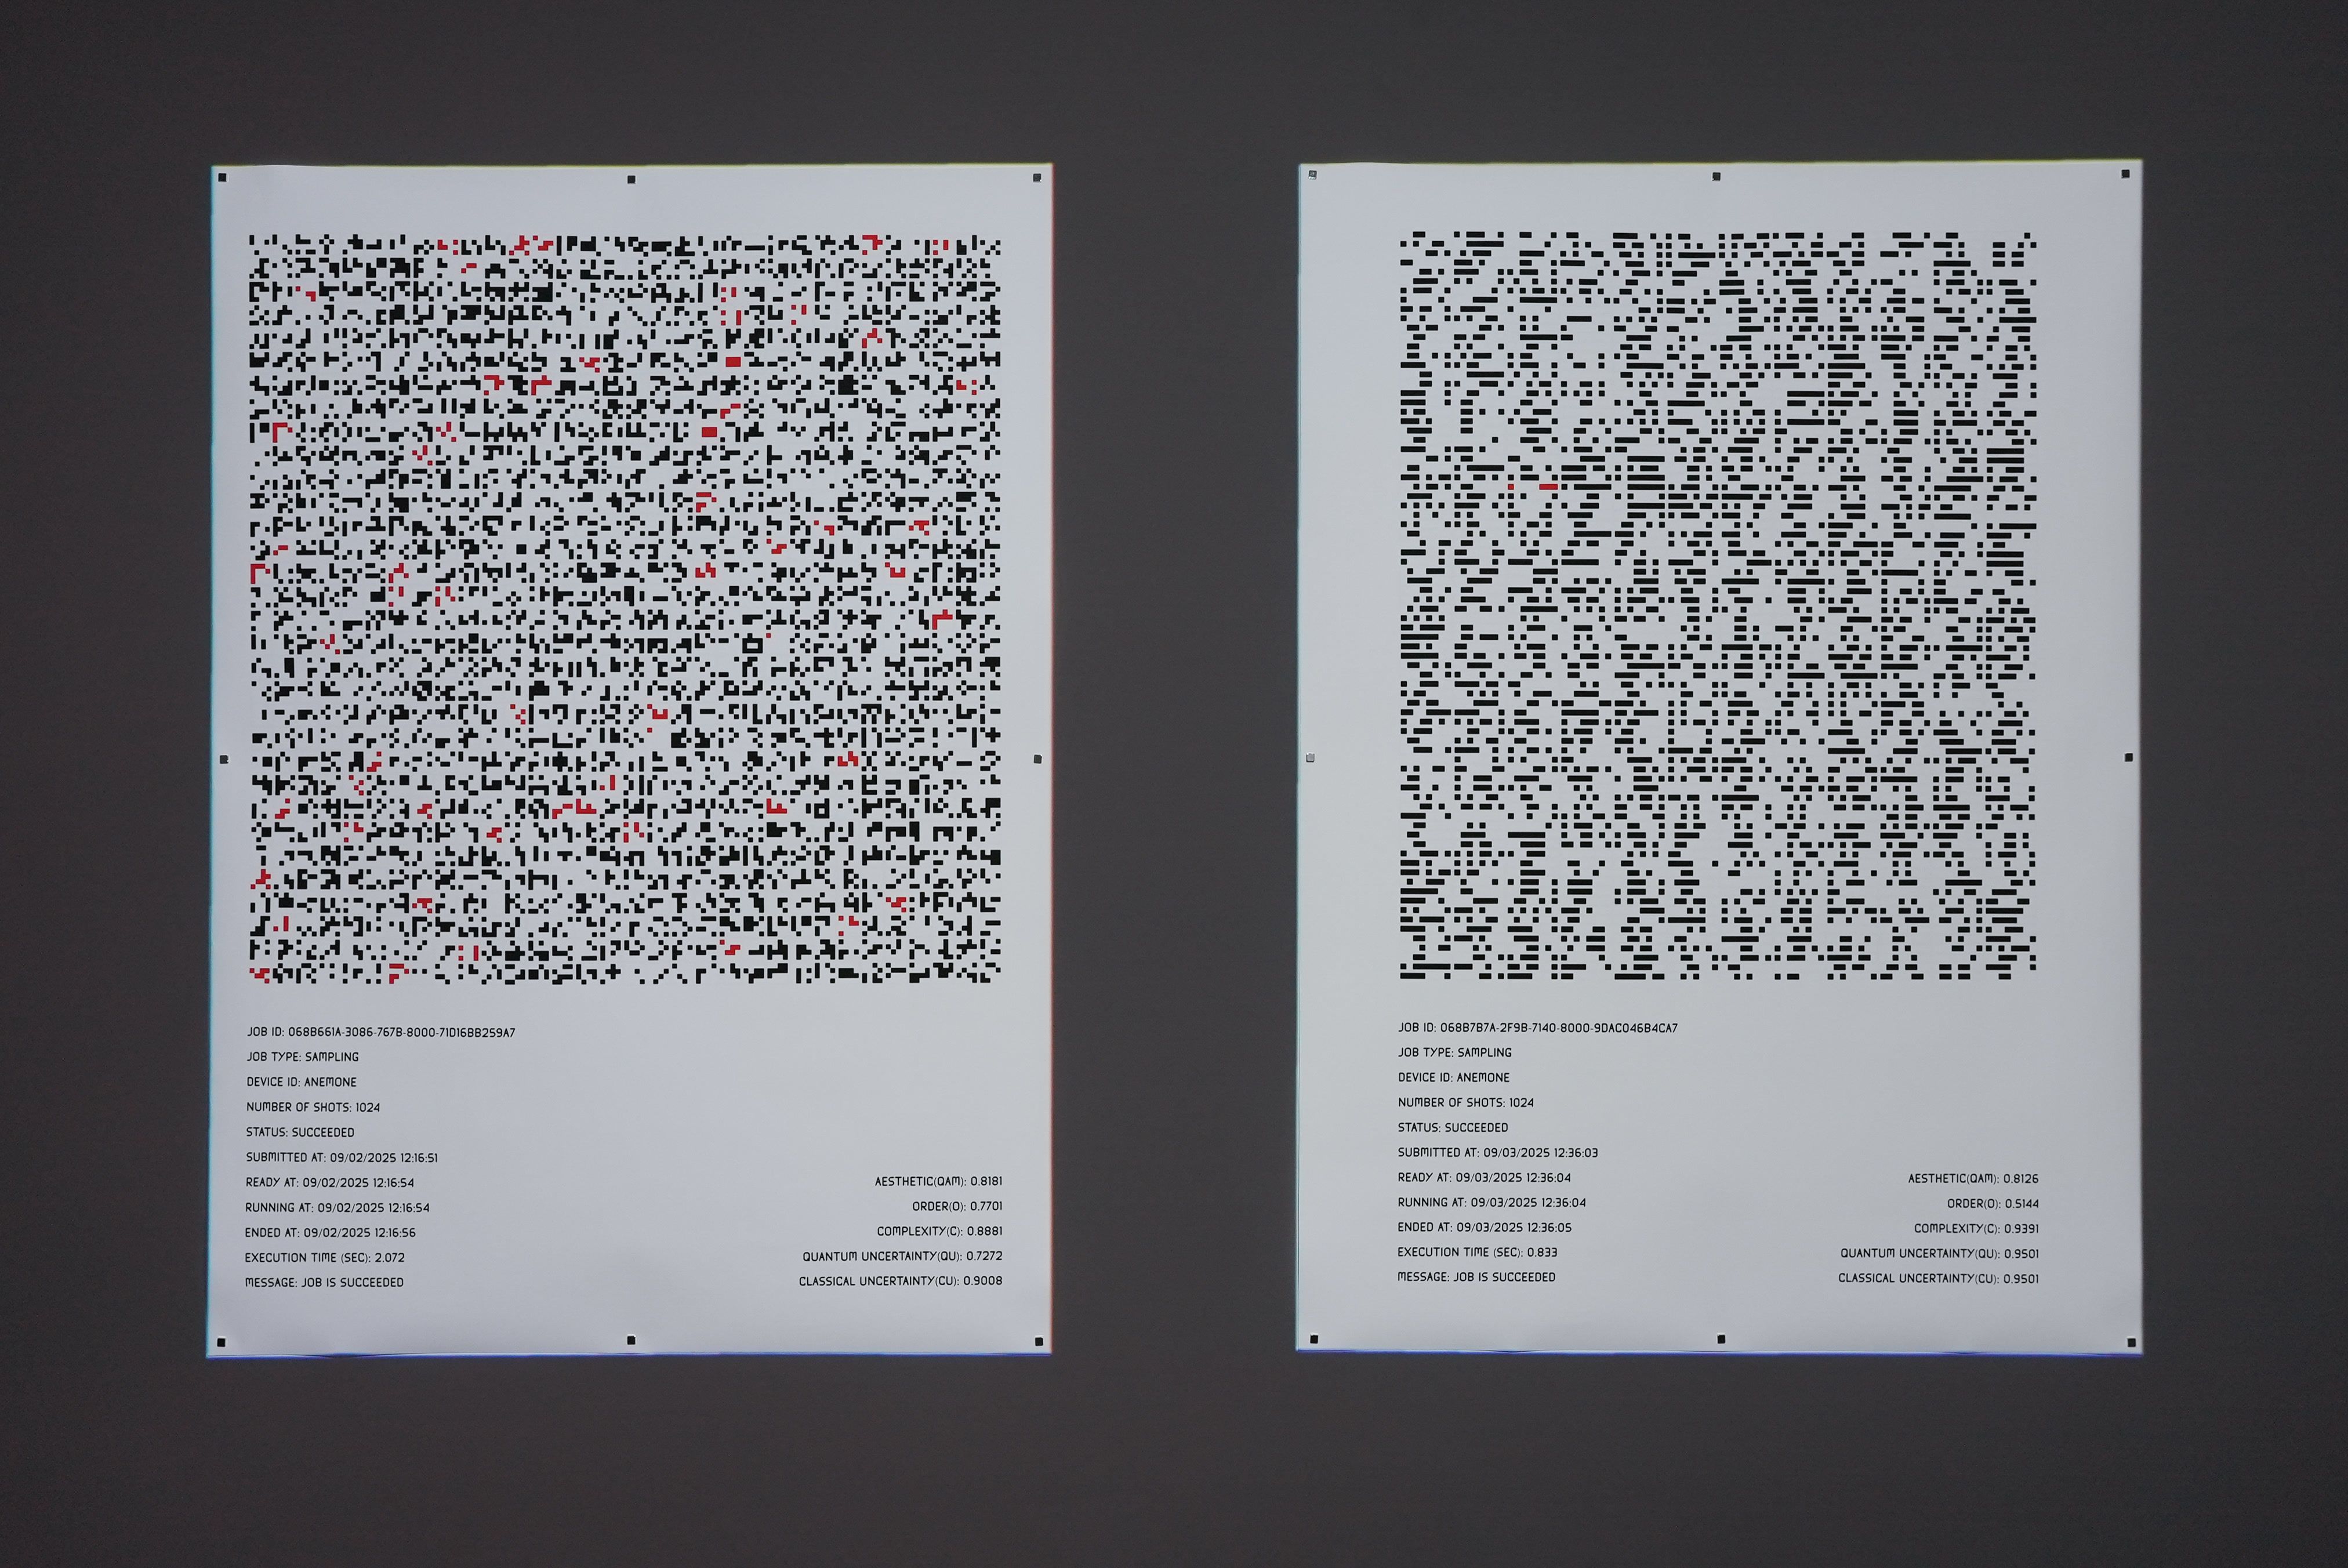 JOB ID: 068B661A-3086-767B-8000-71D16BB259A7
JOB TYPE: SAMPLING
DEVICE ID: ANEMONE
NUMBER OF SHOTS: 1024
STATUS: SUCCEEDED
SUBMITTED AT: 09/02/2025 12:16:51
READY AT: 09/02/2025 12:16:54
RUNNING AT: 09/02/2025 12:16:54
ENDED AT: 09/02/2025 12:16:56
EXECUTION TIME (SEC): 2.072
MESSAGE: JOB IS SUCCEEDED
AESTHETIC(QAM): 0.8181
ORDER(O): 0.7701
COMPLEXITY(C): 0.8881
QUANTUM UNCERTAINTY(QU): 0.7272
CLASSICAL UNCERTAINTY(CU): 0.9008
JOB ID: 068B7B7A-2F9B-7140-8000-9DAC046B4CA7
JOB TYPE: SAMPLING
DEVICE ID: ANEMONE
NUMBER OF SHOTS: 1024
STATUS: SUCCEEDED
SUBMITTED AT: 09/03/2025 12:36:03
READY AT: 09/03/2025 12:36:04
RUNNING AT: 09/03/2025 12:36:04
ENDED AT: 09/03/2025 12:36:05
EXECUTION TIME (SEC): 0.833
MESSAGE: JOB IS SUCCEEDED
AESTHETIC(QAM): 0.8126
ORDER(O): 0.5144
COMPLEXITY(C): 0.9391
QUANTUM UNCERTAINTY(QU): 0.9501
CLASSICAL UNCERTAINTY(CU): 0.9501